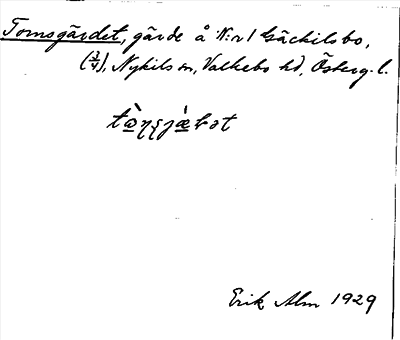 Tomsgärdet, gärde å N:r 1 Gäckilsbo,
(3/4), Nykils sn, Valkebo hd, Österg. l.
Erik Alm 1929